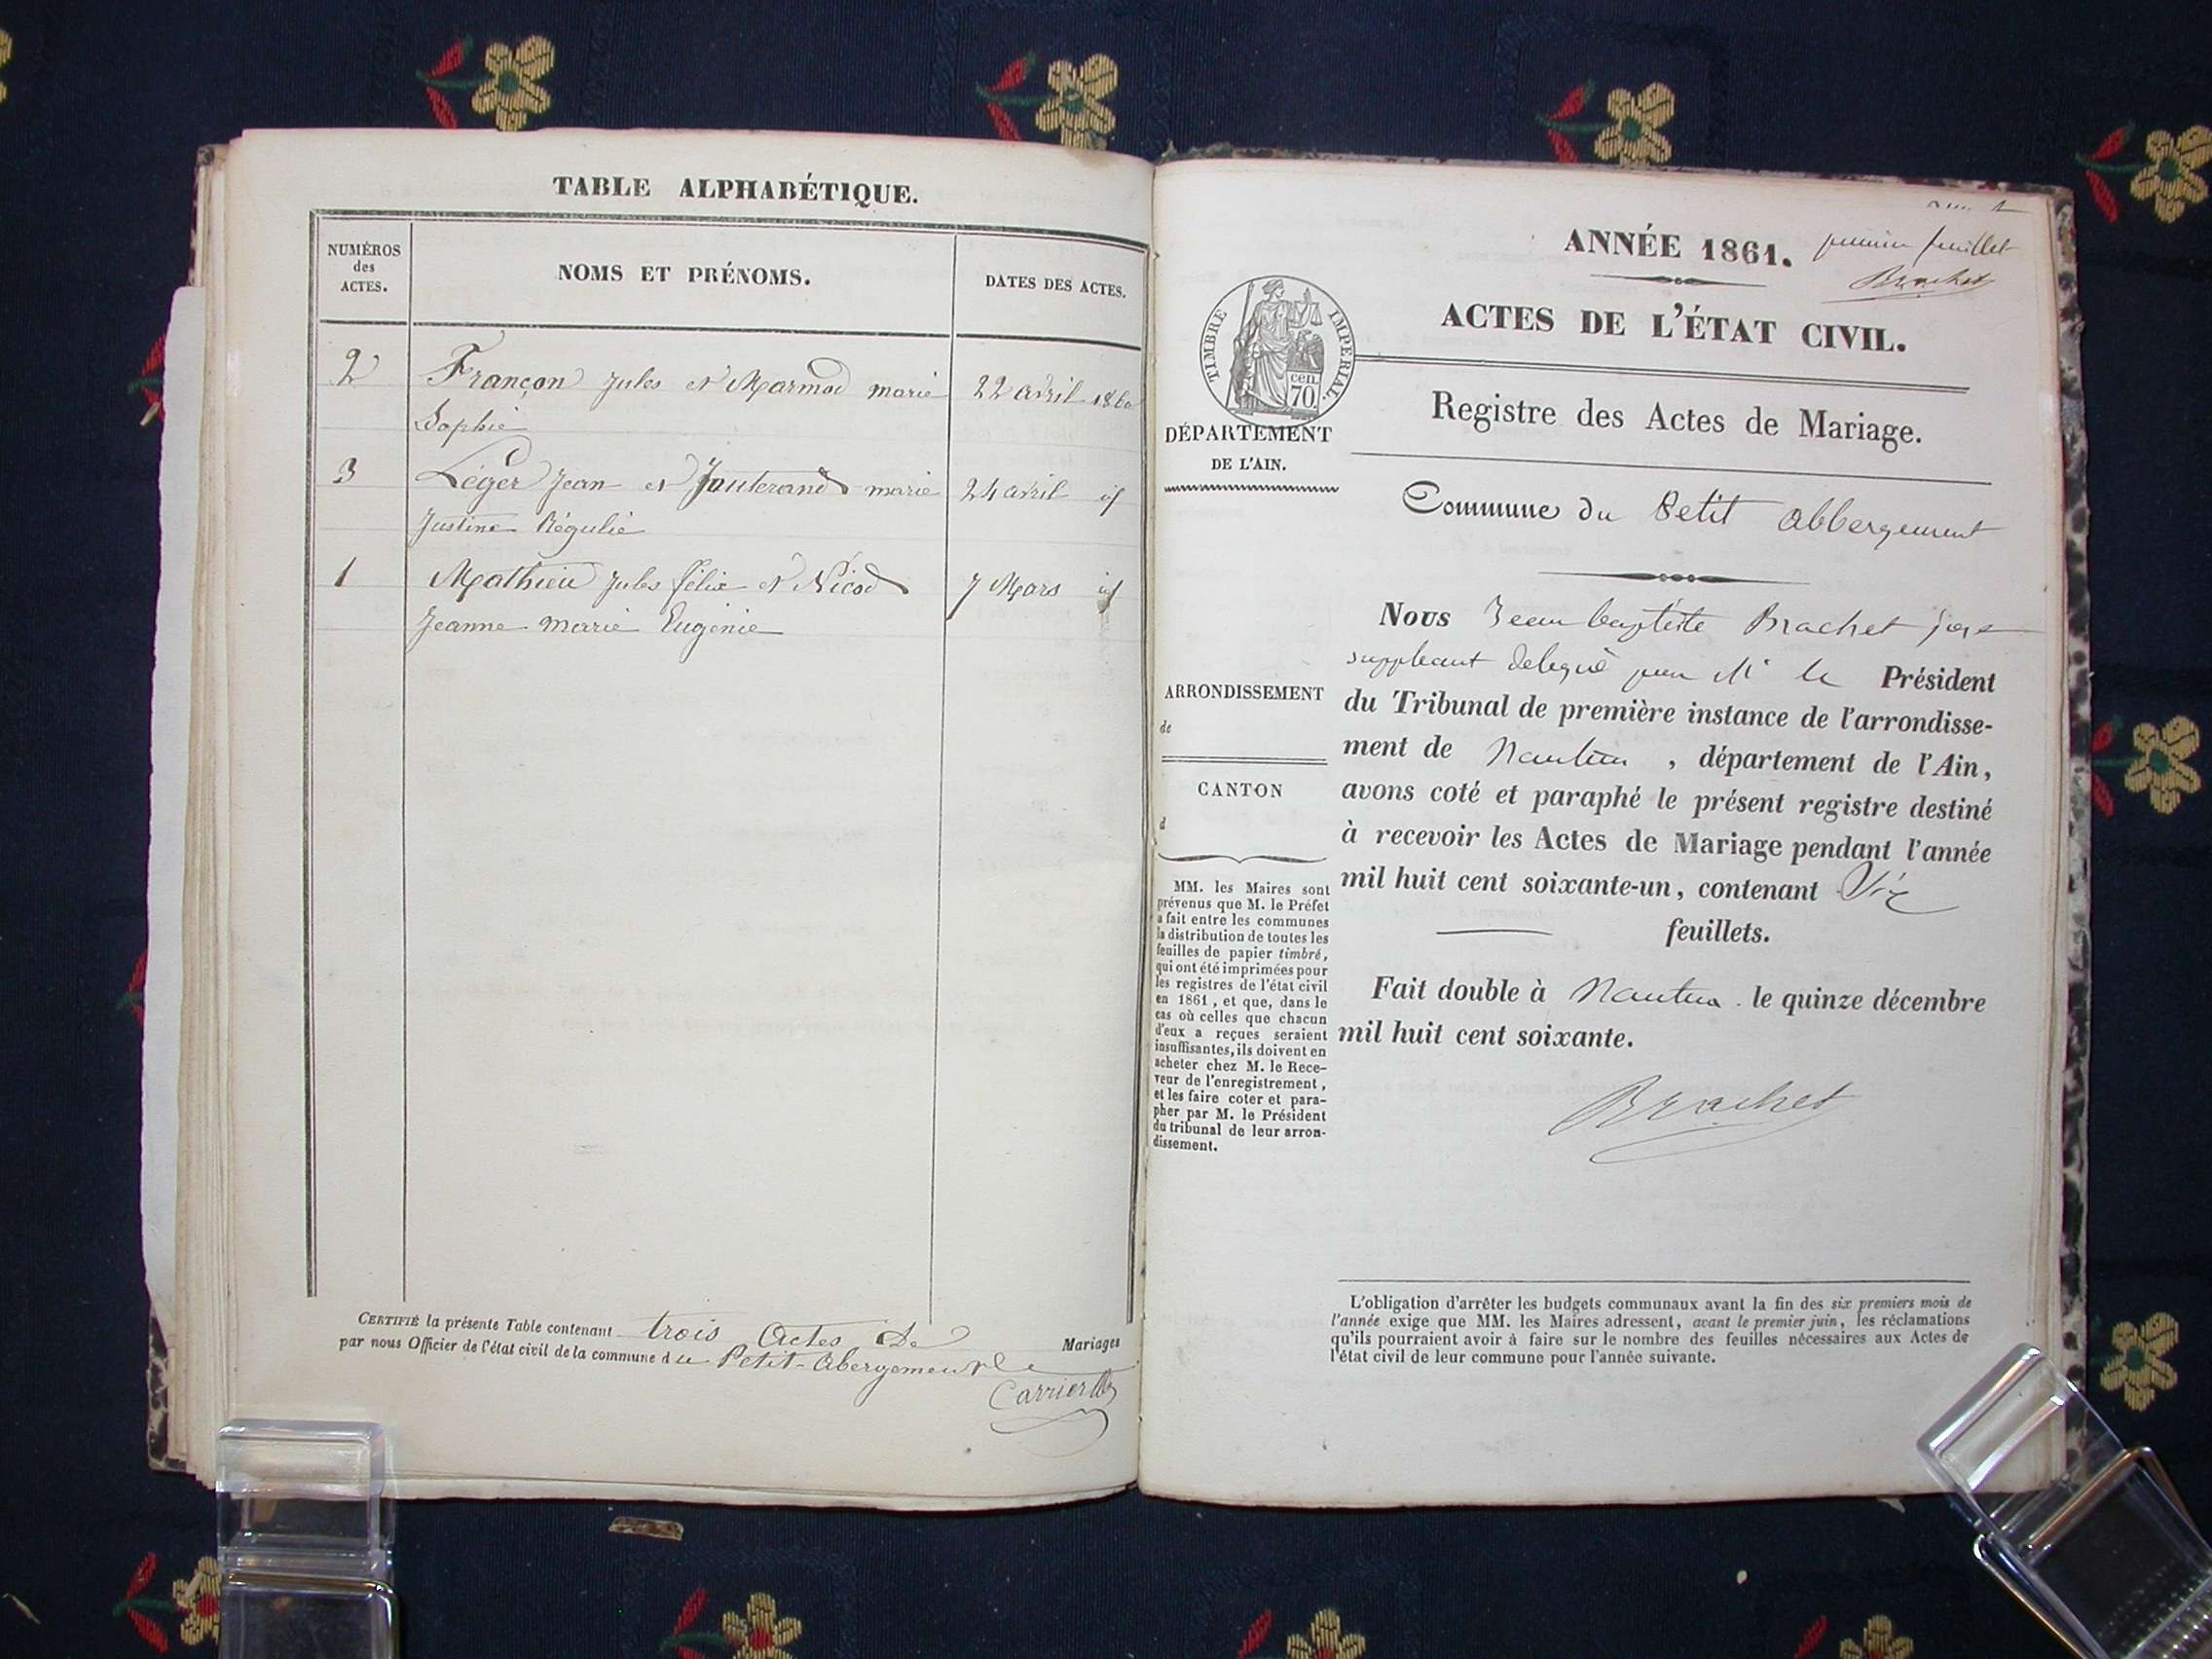 TABLE ALPHABÉTIQUE.
NUMÉROS
des
ACTES.
NOMS ET PRÉNOMS.
DATES DES ACTES.
2 Françon Jules et Marmod marie 22 avril 1860
Sophie
3 Léger Jean et Jouterand marie 24 avril id
Justine Régulie
1 Mathieu Jules félix et Nicod 7 Mars id
Jeanne marie Eugénie
CERTIFIÉ la présente Table contenant trois Actes de Mariages
par nous Officier de l'état civil de la commune du Petit-Abergement
Carrier
ANNÉE 1861.
premier feuillet
Brachet
ACTES DE L'ÉTAT CIVIL.
TIMBRE IMPERIAL.
cen.
70
DÉPARTEMENT
DE L'AIN.
Registre des Actes de Mariage.
Commune du Petit Abbergement
Nous Jean baptiste Brachet juge
suppleant delegué par Mr le Président
du Tribunal de première instance de l'arrondisse-
ment de Nantua, département de l'Ain,
avons coté et paraphé le présent registre destiné
à recevoir les Actes de Mariage pendant l'année
mil huit cent soixante-un, contenant Six
feuillets.
Fait double à Nantua le quinze décembre
mil huit cent soixante.
Brachet
ARRONDISSEMENT
de
CANTON
d
MM. les Maires sont
prévenus que M. le Préfet
a fait entre les communes
la distribution de toutes les
feuilles de papier timbré,
qui ont été imprimées pour
les registres de l'état civil
en 1861, et que, dans le
cas où celles que chacun
d'eux a reçues seraient
insuffisantes, ils doivent en
acheter chez M. le Rece-
veur de l'enregistrement,
et les faire coter et para-
pher par M. le Président
du tribunal de leur arron-
dissement.
L'obligation d'arrêter les budgets communaux avant la fin des six premiers mois de
l'année exige que MM. les Maires adressent, avant le premier juin, les réclamations
qu'ils pourraient avoir à faire sur le nombre des feuilles nécessaires aux Actes de
l'état civil de leur commune pour l'année suivante.